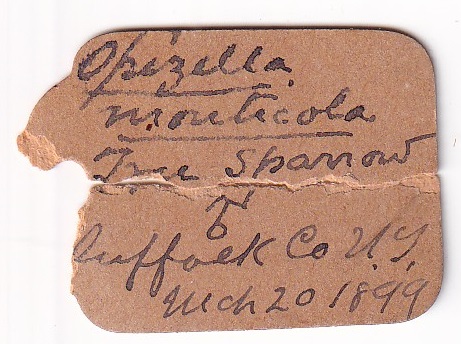 Spizella
monticola
Tree Sparrow
♂
Suffolk Co N.Y.
Mch 20 1899